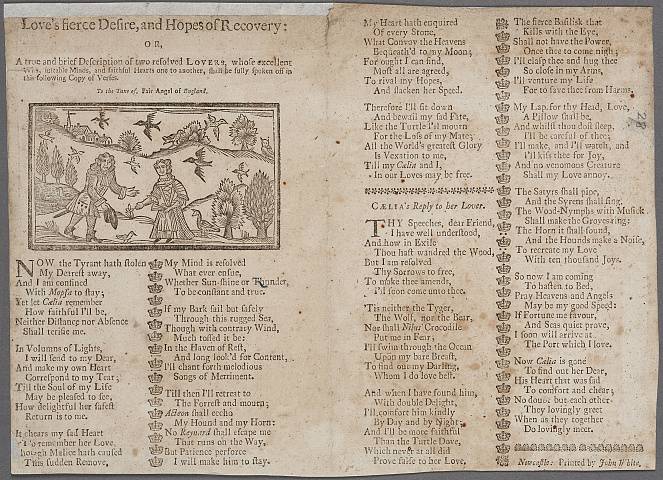 Love's fierce Desire, and Hopes of Recovery:
OR,
A true and brief Description of two resolved LOVERS, whose excellent
Wits, suitable Minds, and faithful Hearts one to another, shall be fully spoken off in
this following Copy of Verses.
To the Tune of, Fair Angel of England.
NOW the Tyrant hath stolen
My Dearest away,
And I am confined
With Mopsa to stay;
Yet let Cælia remember
How faithful I'll be,
Neither Distance nor Absence
Shall terife me.
In Volumns of Lights,
I will send to my Dear,
And make my own Heart
Correspond to my Tear;
Till the Soul of my Life
May be pleased to see,
How delightful her safest
Return is to me.
It chears my sad Heart
To remember her Love,
hough Malice hath caused
This sudden Remove,
My Mind is resolved
What ever ensue,
Whether Sun-shine or Thunder,
To be constant and true.
If my Bark sail but safely
Through this rugged Sea,
Though with contrary Wind,
Much tossed it be:
In the Haven of Rest,
And long look'd for Content,
I'll chant forth melodious
Songs of Merriment.
Till then I'll retreat to
The Forrest and mourn;
Acteon shall eccho
My Hound and my Horn:
No Reynard shall escape me
That runs on the Way,
But Patience perforce
I will make him to stay.
My Heart hath enquired
Of every Stone,
What Convoy the Heavens
Bequeath'd to my Moon;
For ought I can find,
Most all are agreed,
To rival my Hopes,
And slacken her Speed.
Therefore I'll sit down
And bewail my sad Fate,
Like the Turtle I'll mourn
For the Loss of my Mate;
All the World's greatest Glory
Is Vexation to me,
Till my Cælia and I,
In our Loves may be free.
CÆLIA's Reply to her Lover.
THY Speeches, dear Friend,
I have well understood,
And how in Exile
Thou hast wandred the Wood,
But I am resolved
Thy Sorrows to free,
To make thee amends,
I'll soon come unto thee.
'Tis neither the Tyger,
The Wolf, nor the Bear,
Nor shall Nilus' Crocodile
Put me in Fear;
I'll swim through the Ocean
Upon my bare Breast,
To find out my Darling,
Whom I do love best.
And when I have found him,
With double Delight,
I'll comfort him kindly
By Day and by Night;
And I'll be more faithful
Than the Turtle Dove,
Which never at all did
Prove false to her Love.
The fierce Basilisk that
Kills with the Eye,
Shall not have the Power,
Once thee to come nigh;
I'll clasp thee and hug thee
So close in my Arms,
I'll venture my Life
For to save thee from Harms.
My Lap for thy Head, Love,
A Pillow shall be,
And whilst thou dost sleep,
I'll be careful of thee;
I'll make, and I'll watch, and
I'll kiss thee for Joy,
And no venomous Creature
Shall my Love annoy.
The Satyrs shall pipe,
And the Syrens shall sing,
The Wood-Nymphs with Musick
Shall make the Groves ring:
The Horn it shall sound,
And the Hounds make a Noise,
To recreate my Love
With ten thousand Joys.
So now I am coming
To hasten to Bed,
Pray Heavens and Angels
May be my good Speed:
If Fortune me favour,
And Seas quiet prove,
I soon will arrive at
The Port which I love.
Now Cælia is gone
To find out her Dear,
His Heart that was sad
To comfort and chear;
No doubt but each other
They lovingly greet
When as they together
Do lovingly meet.
Newcastle: Printed by John White.
28